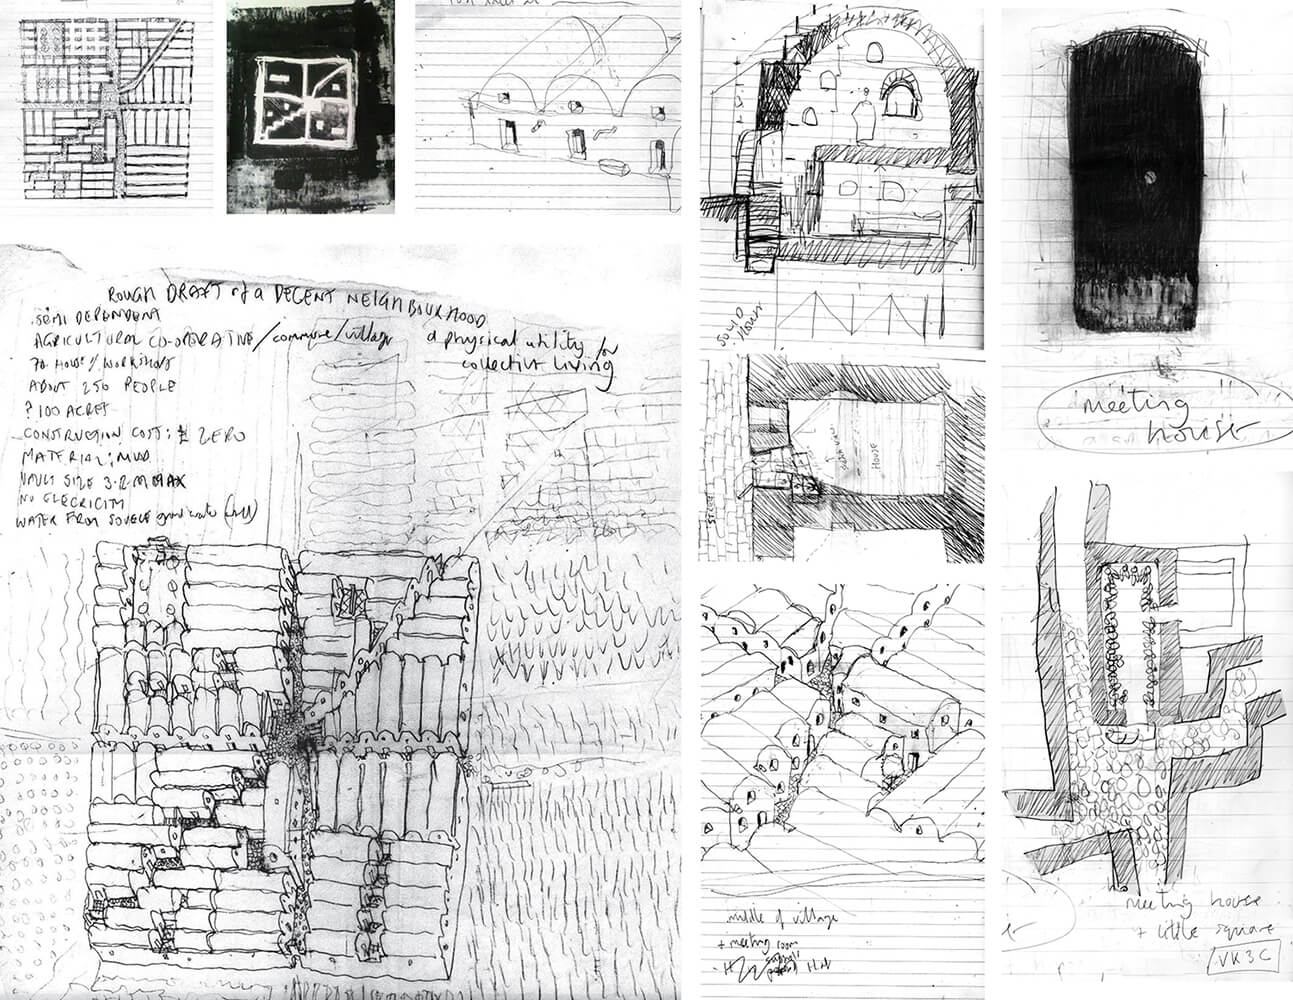 ROUGH DRAFT of a DECENT NEIGHBOURHOOD
SEMI DEPENDENT
AGRICULTURAL CO-OPERATIVE / commune / village
a physical utility for
collective living
70 HOUSE / WORKSHOPS
ABOUT 250 PEOPLE
? 100 ACRES
CONSTRUCTION COST: £ ZERO
MATERIAL: MUD
VAULT SIZE 3.2 M MAX
NO ELECRICITY
WATER FROM SOURCE
SOLID
HOUSE
STREET
meeting
house
middle of village
+ meeting room
meeting house
+ little square
VK3C